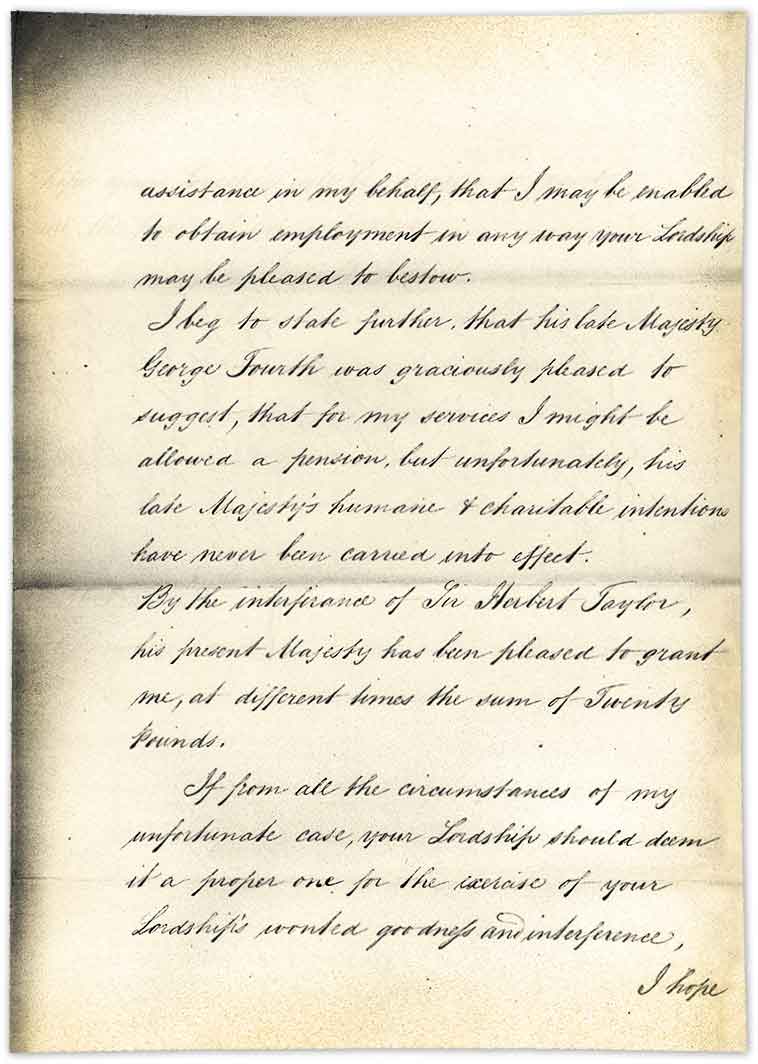 assistance in my behalf, that I may be enabled
to obtain employment in any way your Lordship
may be pleased to bestow.
I beg to state further, that his late Majesty
George Fourth was graciously pleased to
suggest, that for my services I might be
allowed a pension, but unfortunately, his
late Majesty's humane & charitable intentions
have never been carried into effect.
By the interferance of Sir Herbert Taylor,
his present Majesty has been pleased to grant
me, at different times the sum of Twenty
Pounds.
If from all the circumstances of my
unfortunate case, your Lordship should deem
it a proper one for the exercise of your
Lordship's wonted goodness and interference,
I hope